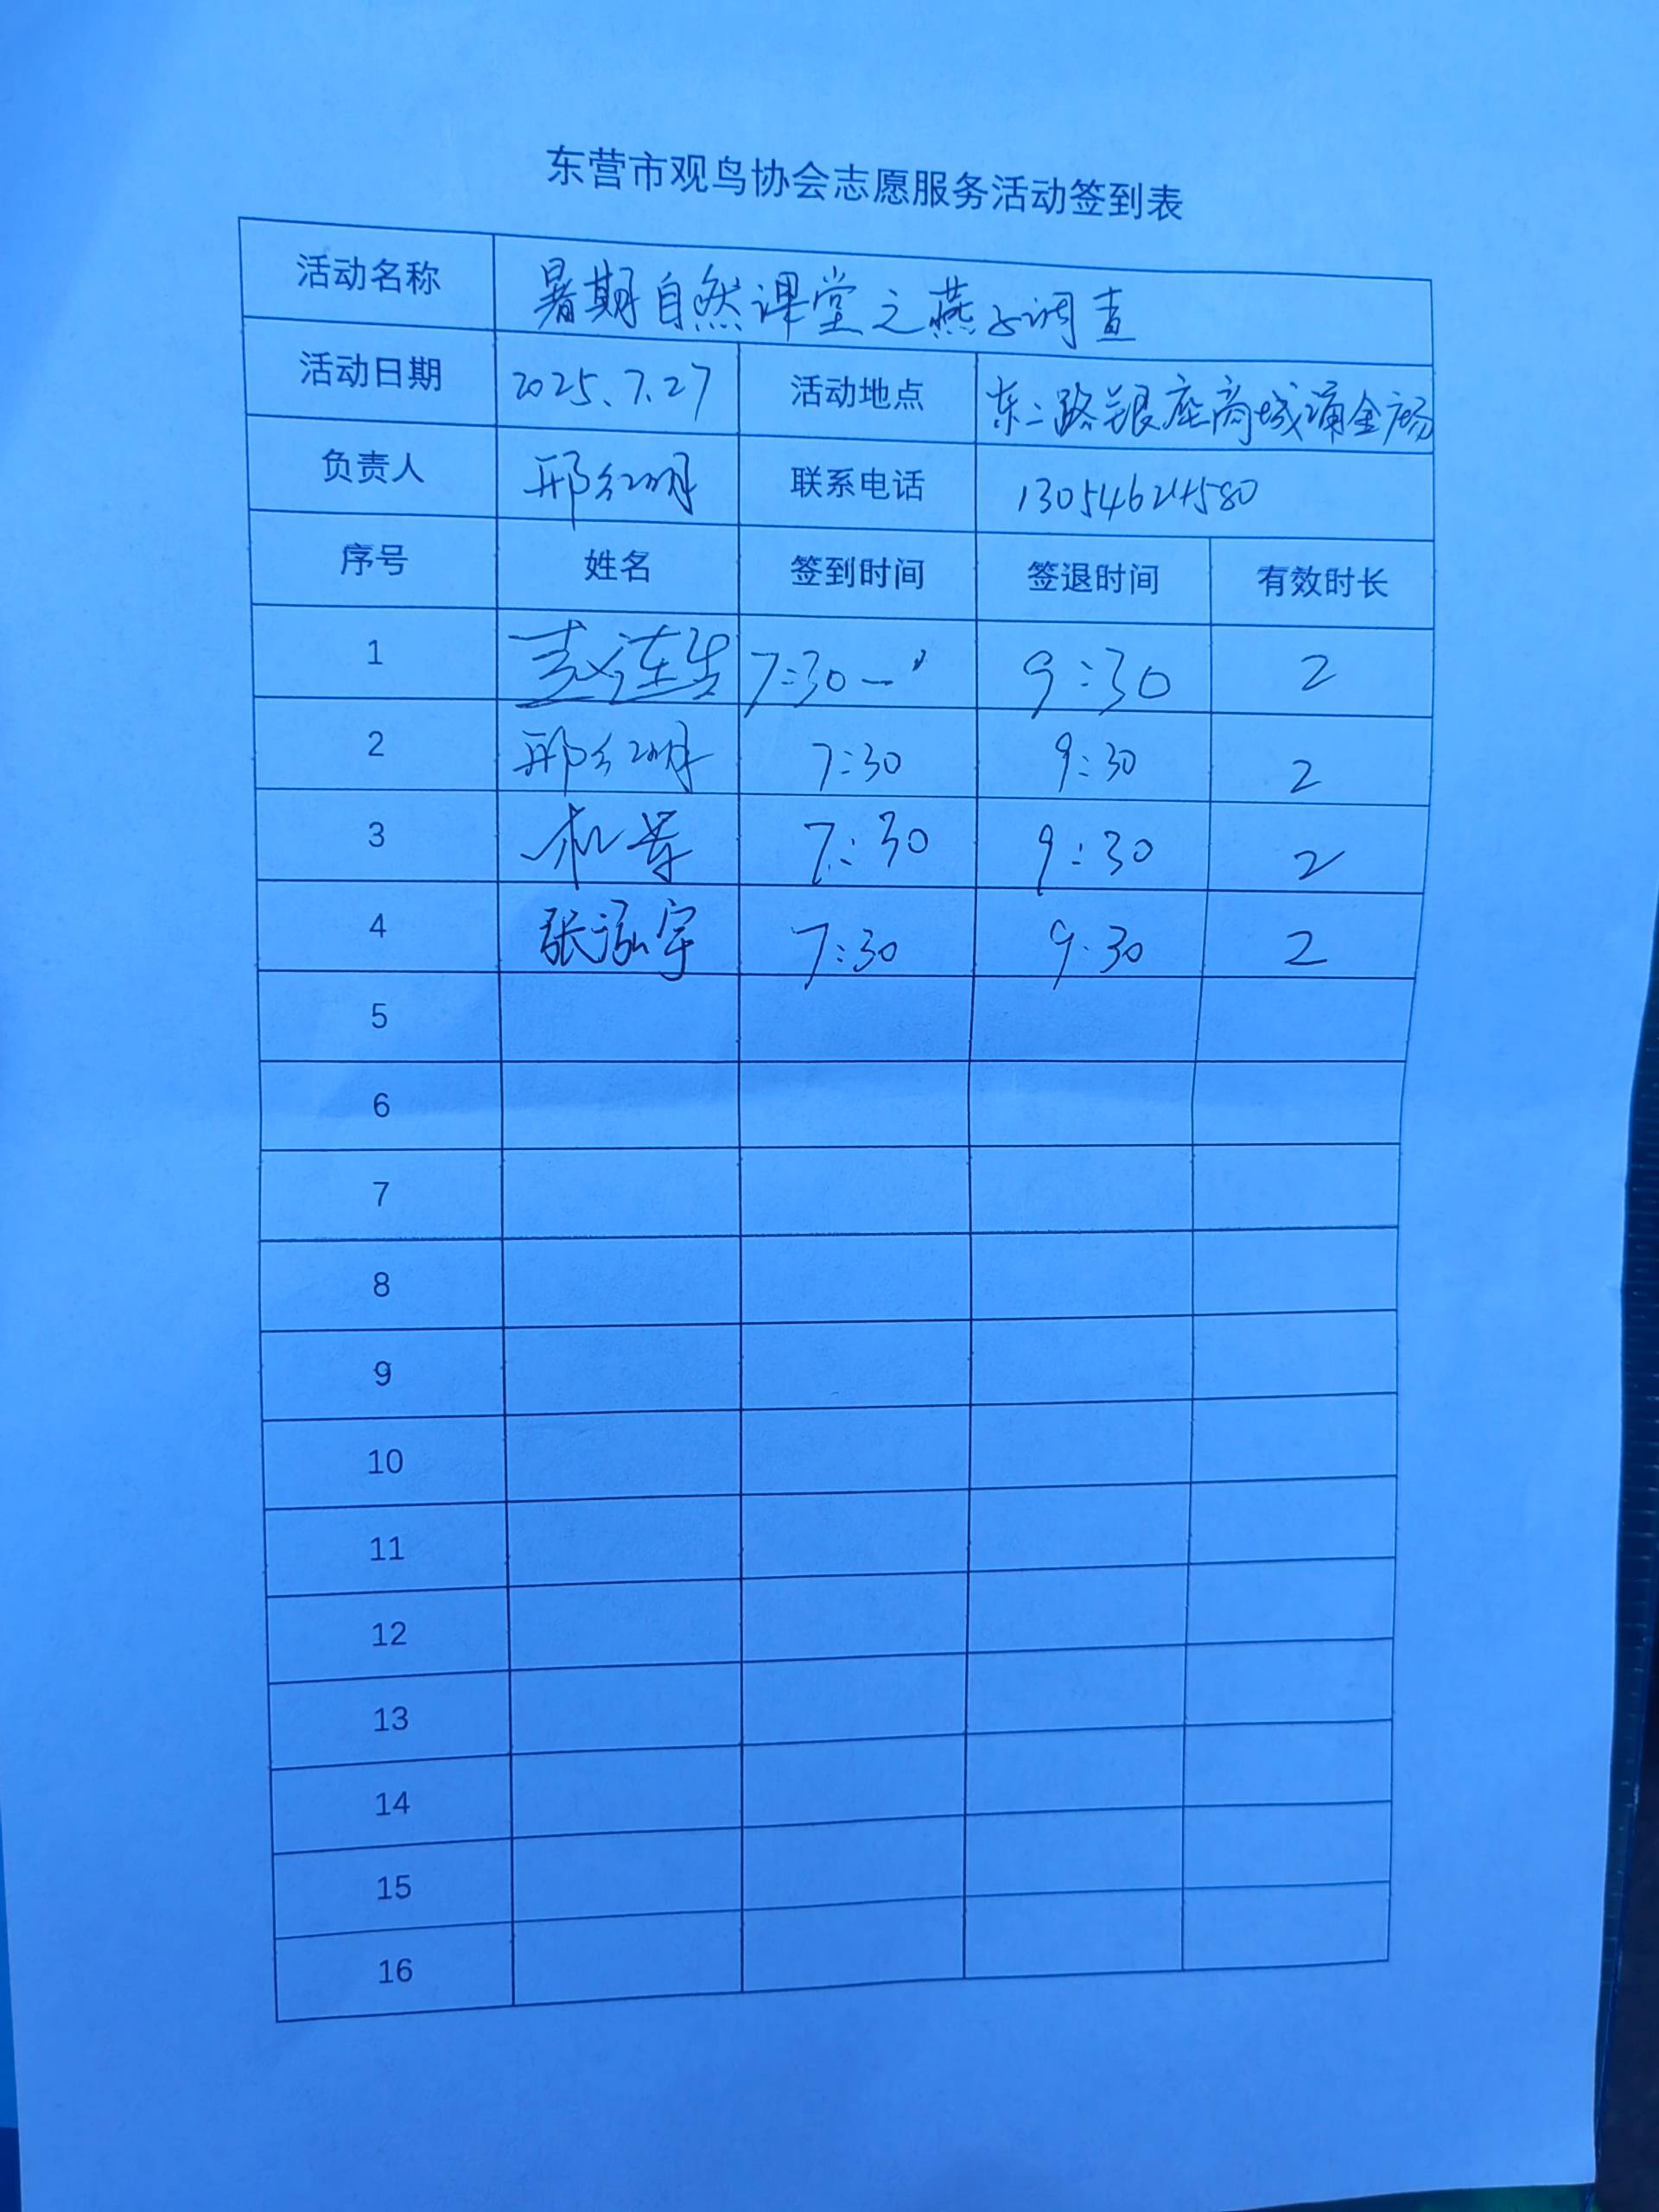 东营市观鸟协会志愿服务活动签到表
活动名称 暑期自然课堂之燕子调查
活动日期 2025.7.27 活动地点 东二路银座商城浦金广场
负责人 邢红明 联系电话
序号 姓名 签到时间 签退时间 有效时长
1 7:30 — 9:30 2
2 邢红明 7:30 9:30 2
3 7:30 9:30 2
4 张泓宇 7:30 9:30 2
5
6
7
8
9
10
11
12
13
14
15
16